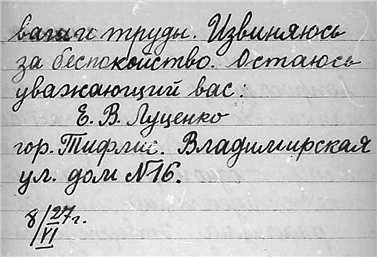 ваши труды. Извиняюсь
за беспокойство. Остаюсь
уважающий вас:
Е. В. Луценко
гор. Тифлис. Владимирская
ул. дом №16.
8/VI 27 г.